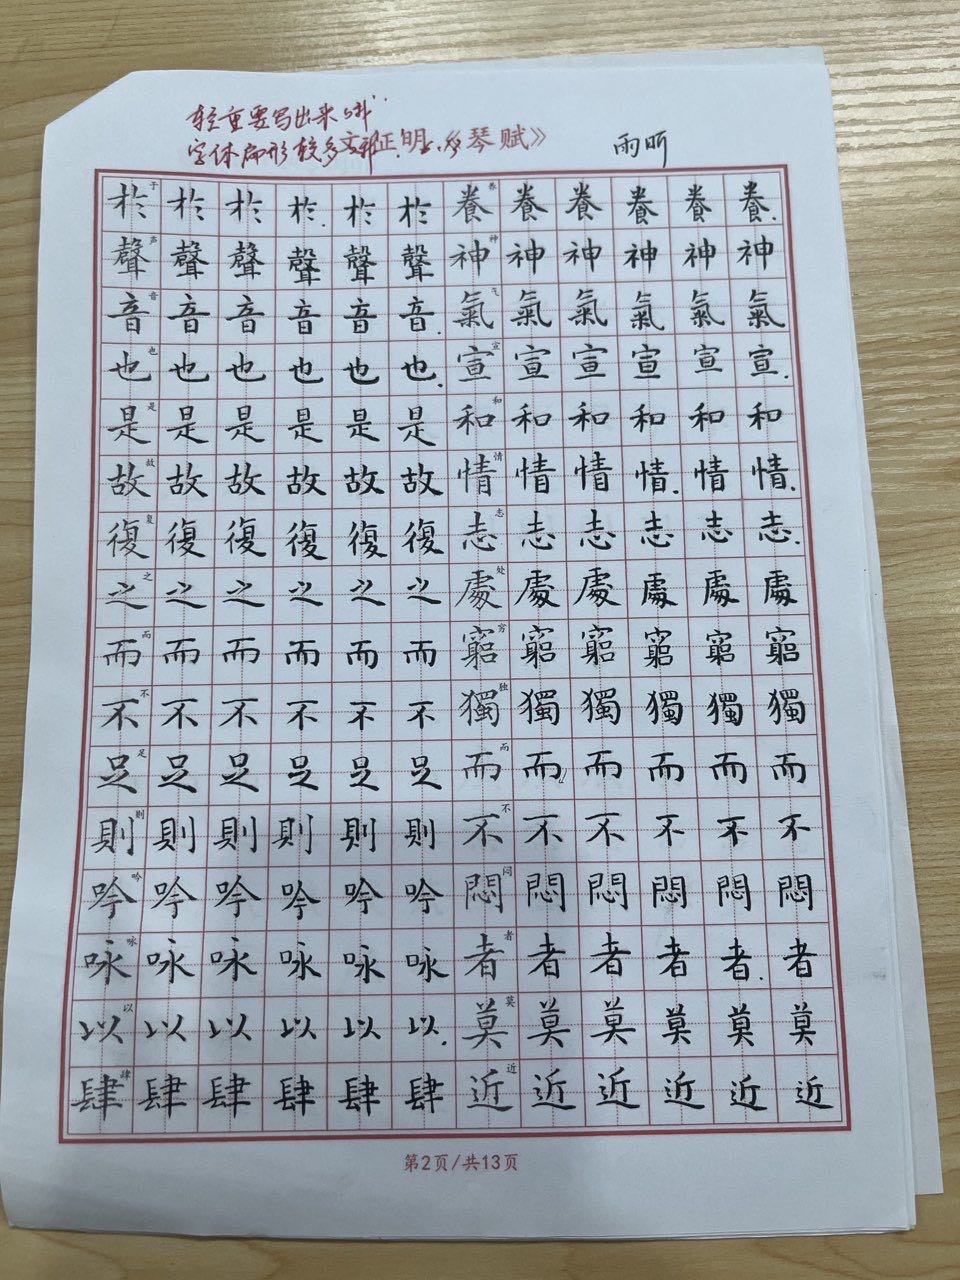 轻重要写出来哦
字体扁形较多 文征明《琴赋》 雨昕
於于於於於於於養养養養養養養
聲声聲聲聲聲聲神神神神神神神
音音音音音音音氣气氣氣氣氣氣
也也也也也也也宣宣宣宣宣宣宣
是是是是是是是和和和和和和和
故故故故故故故情情情情情情情
復复復復復復復志志志志志志志
之之之之之之之處处處處處處處
而而而而而而而窮穷窮窮窮窮窮
不不不不不不不獨独獨獨獨獨獨
足足足足足足足而而而而而而而
則则則則則則則不不不不不不不
吟吟吟吟吟吟吟悶闷悶悶悶悶悶
咏咏咏咏咏咏咏者者者者者者者
以以以以以以以莫莫莫莫莫莫莫
肆肆肆肆肆肆肆近近近近近近近
第2页/共13页